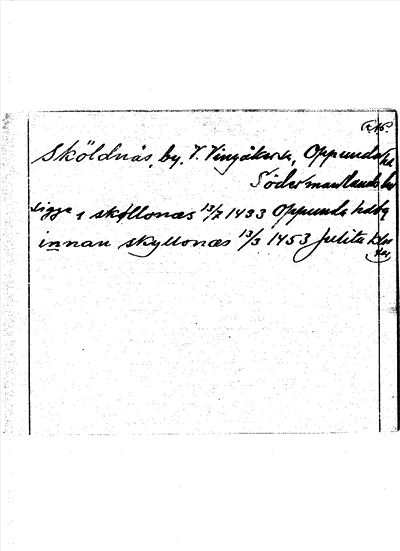 Sköldnäs, by, V. Vingåkers, Oppunda hd
Södermanlands
Sigge i skyllonæs 13/7 1433 Oppunda hdbg
innan skyllonæs 13/3 1453 Julita